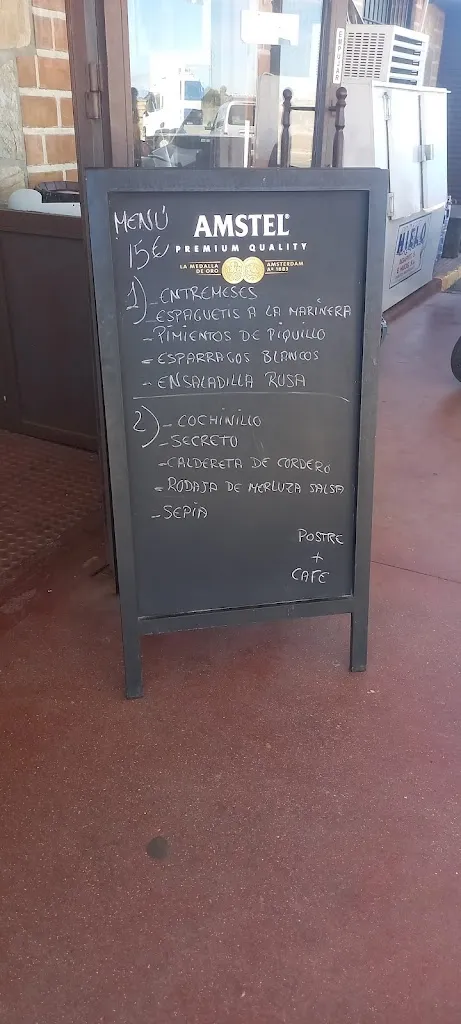 EMPUJAR
MENÚ
15€
AMSTEL®
PREMIUM QUALITY
LA MEDALLA
DE ORO
AMSTERDAM
Aº 1883
1) - ENTREMESES
- ESPAGUETIS A LA MARIÑERA
- PIMIENTOS DE PIQUILLO
- ESPARRAGOS BLANCOS
- ENSALADILLA RUSA
2) - COCHINILLO
- SECRETO
- CALDERETA DE CORDERO
- RODAJA DE MERLUZA SALSA
- SEPIA
POSTRE
+
CAFE
HIELO